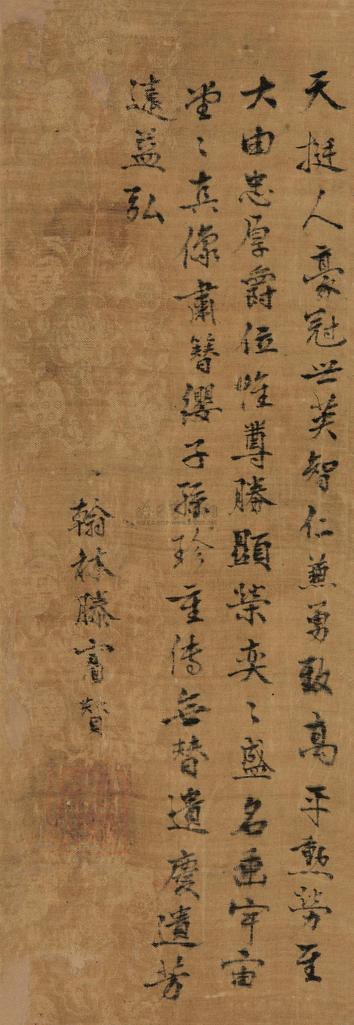 天挺人豪冠世英智仁兼勇致高平勲勞至
大由忠厚爵位惟尊勝顯榮奕〻盛名垂宇宙
堂〻真像肅簪纓子孫珍重傳無替遺慶遺芳
遠益弘
翰林滕賓贊